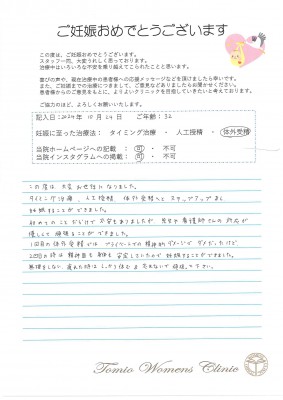 ご妊娠おめでとうございます
この度は、ご妊娠おめでとうございます。
スタッフ一同、大変うれしく思っております。
治療中はいろいろな不安を乗り越えてこられたことと思います。
喜びの声や、現在治療中の患者様への応援メッセージなどを頂けましたら幸いです。
また、ご妊娠までの治療につきまして、ご意見などありましたらお聞かせください。
患者様からのご意見をもとに、よりよいクリニックを目指していきたいと考えております。
ご協力のほど、よろしくお願いいたします。
記入日：2024年 10月 24日 ご年齢：32
妊娠に至った治療法： タイミング治療 ・ 人工授精 ・ 体外受精
当院ホームページへの記載 ： 可 ・ 不可
当院インスタグラムへの掲載 ： 可 ・ 不可
この度は大変お世話になりました。
タイミング治療、人工授精、体外受精へとステップアップし
妊娠することができました。
初めてのことだらけで不安もありましたが、先生や看護師さんの対応が
優しくて頑張ることができました。
1回目の体外受精ではプライベートでの精神的ダメージでダメだったけど
2回目の時は精神面も身体も安定していたので妊娠することができました。
無理をしない、疲れた時はしっかり休むを忘れないで頑張って下さい。
Tomio Womens Clinic